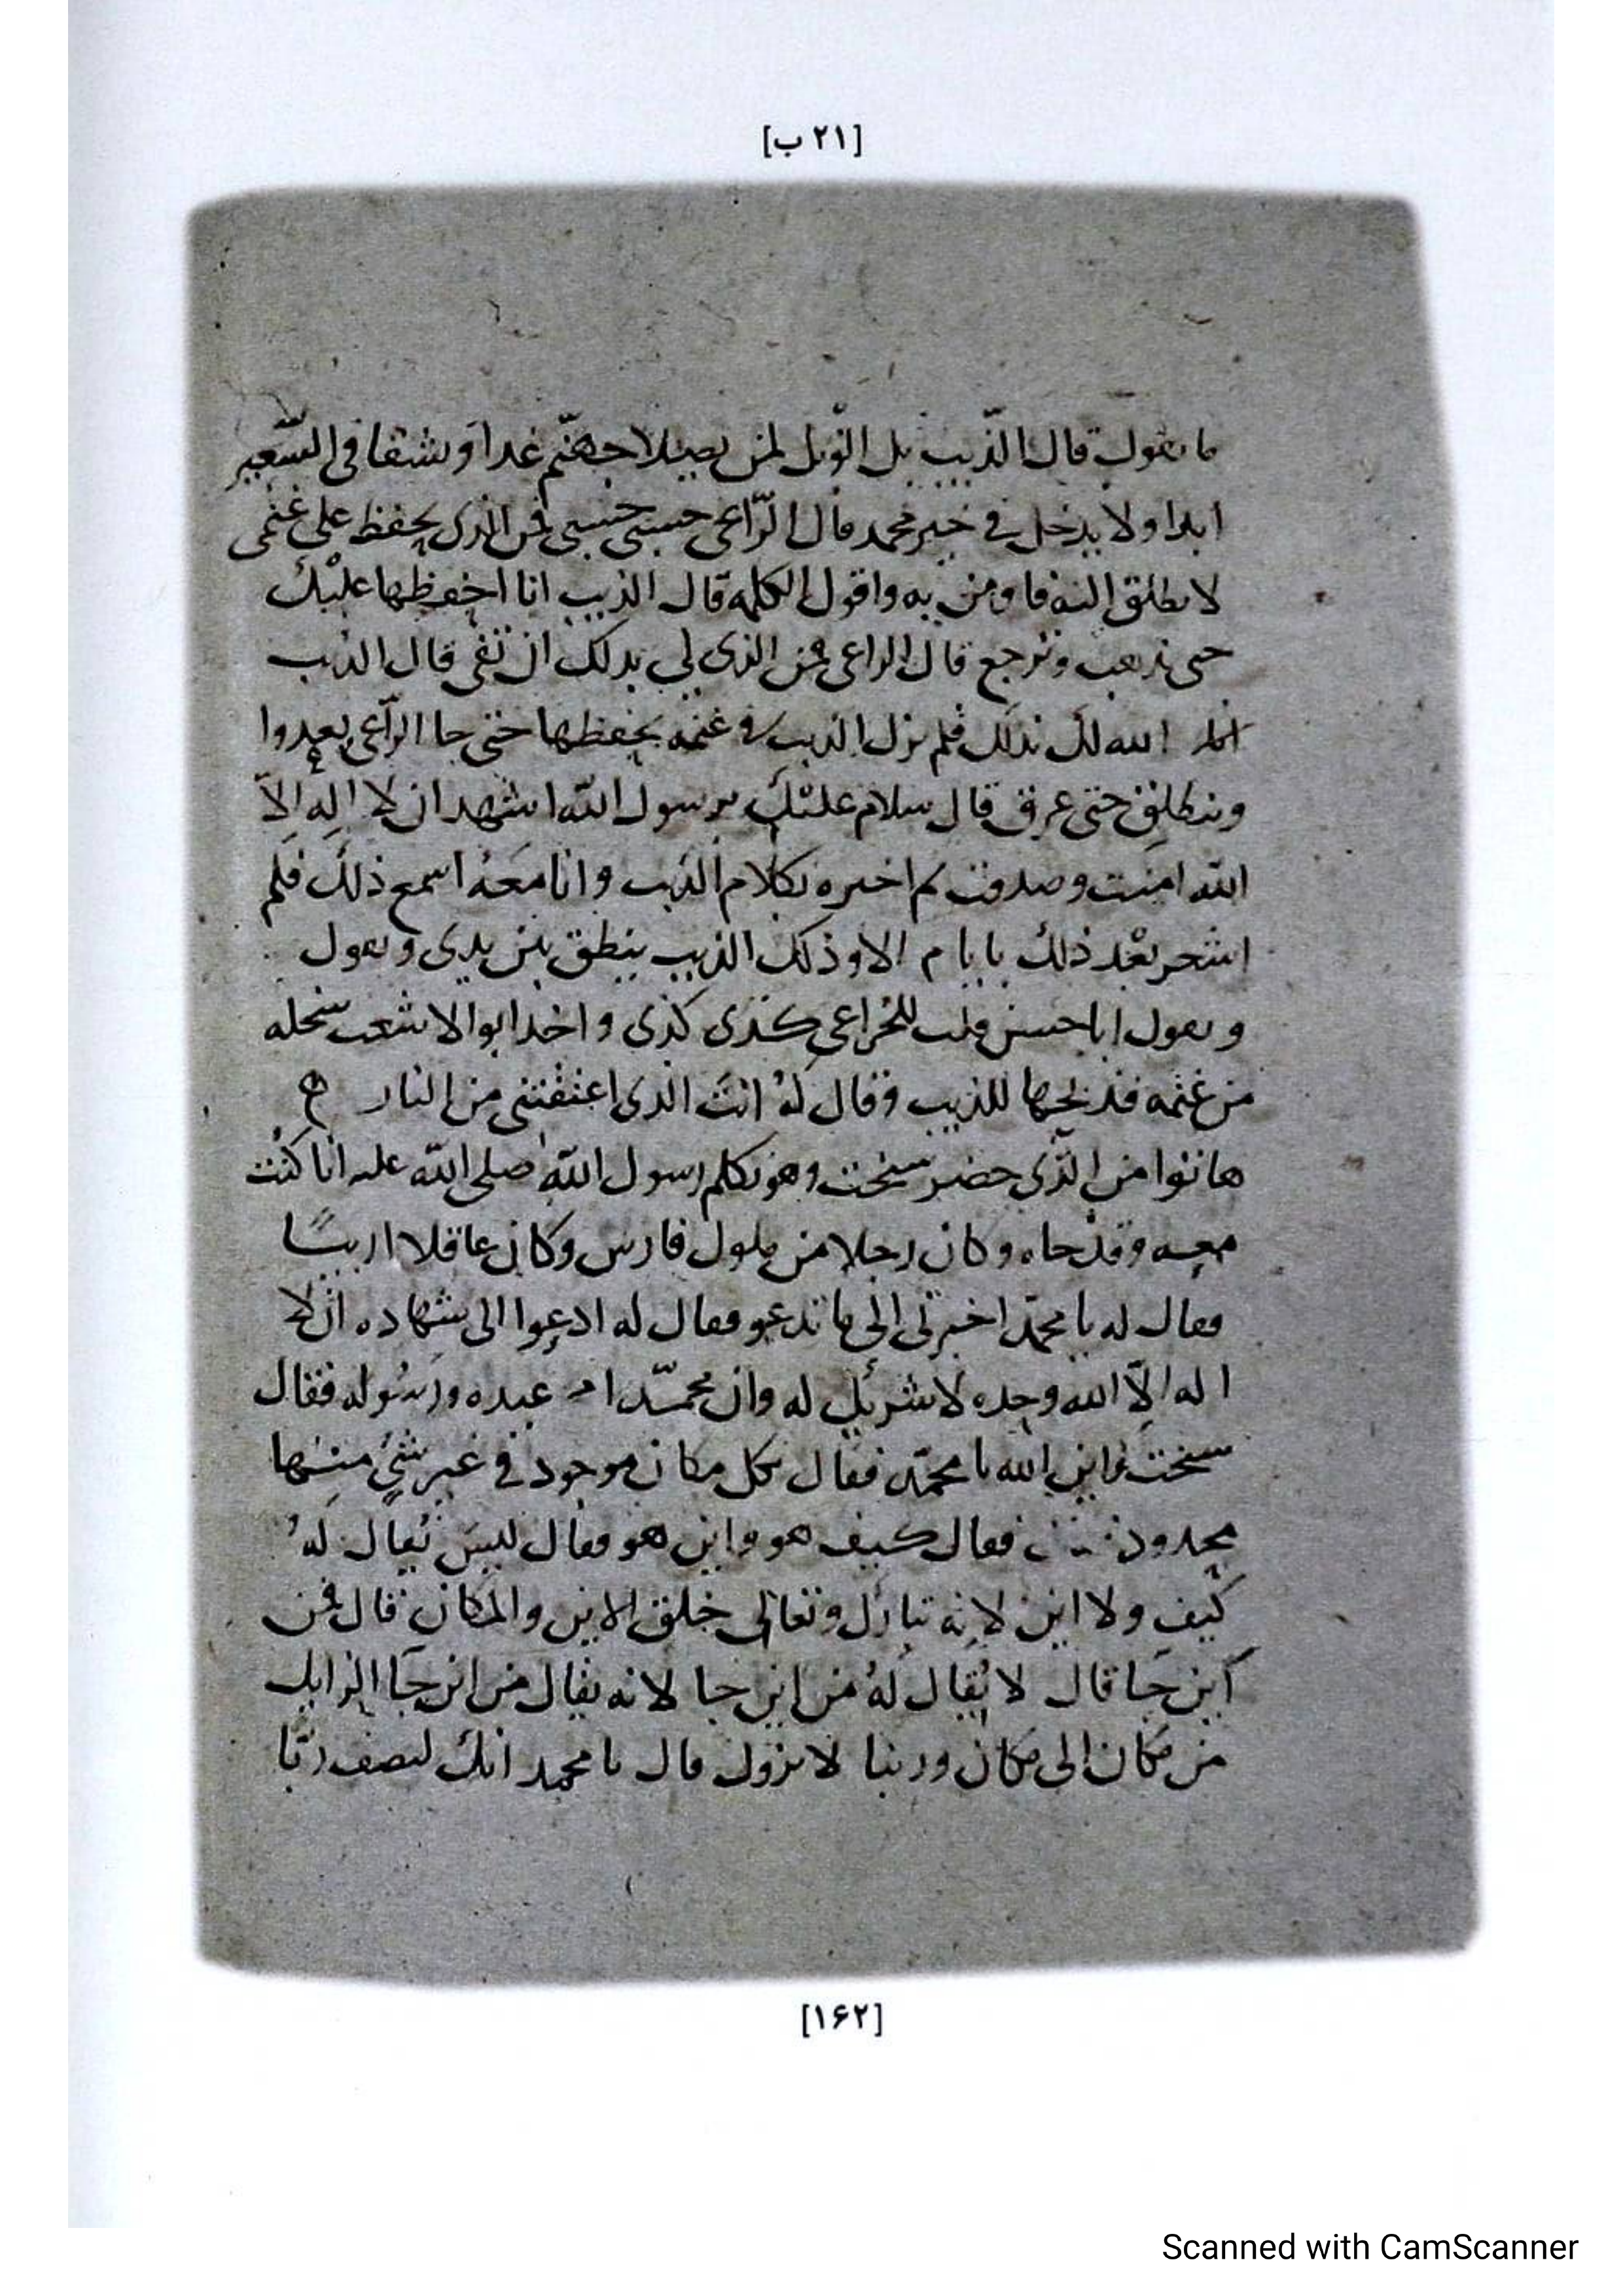 [٢١ ب]
ما يقول قال الذّيب بل الويل لمن يصلا جهنّم غدا ويشقا فى السّعير
ابدا ولا يدخل في خبر محمد قال الرّاعى حسبى حسبى فمن الذى يحفظ على غنمى
لانطلق اليه فاومن به واقول الكلمه قال الذيب انا احفظها عليك
حتى تذهب وترجع قال الراعى فمن الذى لى بذلك ان تفى قال الذيب
الله لك بذلك فلم يزل الذيب في غنمه يحفظها حتى جا الرّاعى يعدوا
وينطلق حتى قال سلام عليك يرسول الله اشهد ان لا اله الّا
الله امنت وصدقت ثم اخبره بكلام الذيب وانا معه اسمع ذلك فلم
بعد ذلك بايام الا وذلك الذيب ينطق بين يدى ويقول
ويقول اباحسن قلت للخزاعى كذى كذى واخذ ابوالاشعب سخله
من غنمه فذبحها للذيب وقال لهُ انتَ الذى اعتقتنى من النار
هاتوا من الذّى حضر سبخت وهو يكلم رسول الله صلى الله عليه انا كنت
معه وقد جاه وكان رجلا من ملوك فارس وكان عاقلا اريبًا
فقال له يا محمدّ اخبرنى الى ما تدعو فقال له ادعوا الى شهاده ان لا
اله الّا الله وحده لا شريك له وان محمّدا عبده ورسُوله فقال
سبخت واين الله يا محمّد فقال بكل مكان موجود في غير شيٍ منها
محدود فقال كيف هو واين هو فقال ليس يُقال لهُ
كيف ولا اين لانه تبارك وتعالى خلق الاين والمكان قال فمن
اين جا قال لا يُقال لهُ من اين جا لانه يقال من اين جا الزايل
من مكان الى مكان وربنا لا يزول قال يا محمد انك لتصف ربّا
[١۶٢]
Scanned with CamScanner